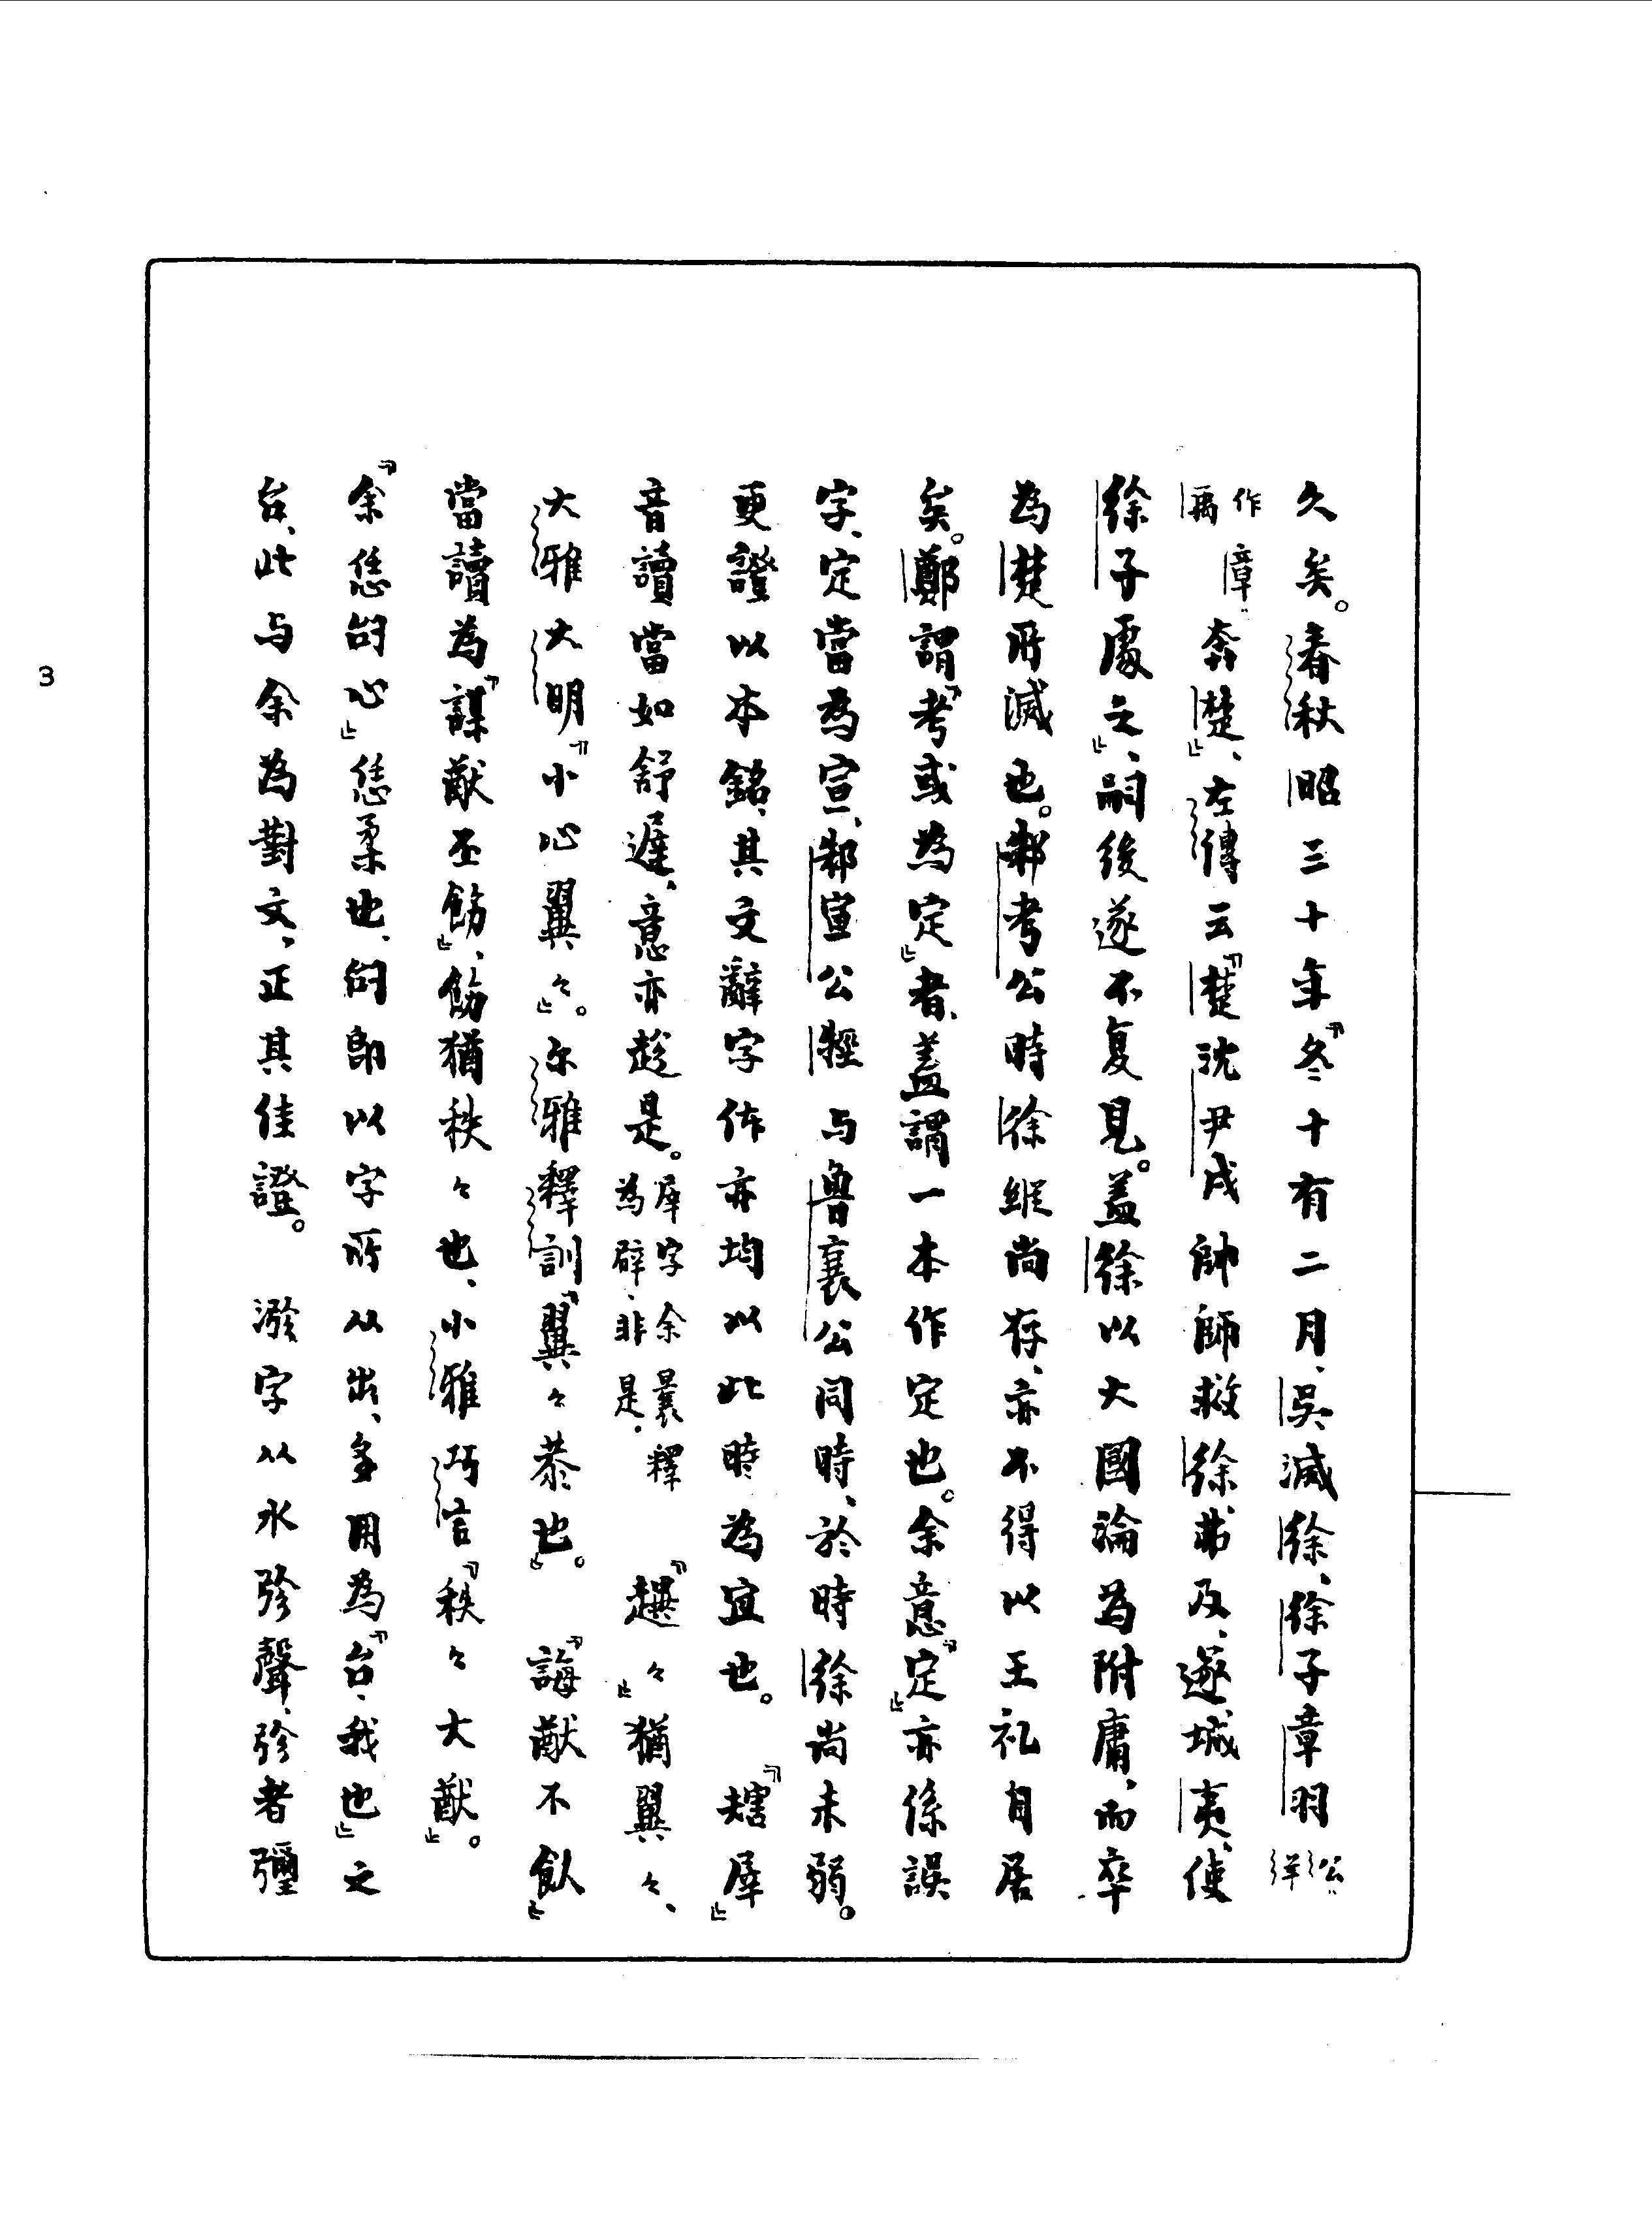 久矣。春秋昭三十年『冬十有二月、吳滅徐、徐子章羽公羊
作章禹奔楚』、左傳云『楚沈尹戌帥師救徐弗及、遂城夷、使
徐子處之』、嗣後遂不复見。蓋徐以大國淪為附庸、而卒
為楚所滅也。邾考公時徐縱尚存、亦不得以王礼自居
矣。鄭謂『考或為定』者、蓋謂一本作定也。余意『定』亦係誤
字、定當為宣、邾宣公牼与魯襄公同時、於時徐尚未弱。
更證以本銘、其文辭字体亦均以此時為宜也。『屖』
音讀當如舒遲、意亦趁是。屖字余曩釋為辟、非是.『趩々』猶翼々、
大雅大明『小心翼々』。尔雅釋訓『翼々恭也』。『誨猷不飤』
當讀為『謀猷丕飭』、飭猶秩々也、小雅巧言『秩々大猷』。
『余恁訇心』恁柔也、訇即以字所从出、多用為『台、我也』之
台、此与余為對文、正其佳證。 字从水㢱聲、㢱者彊
3